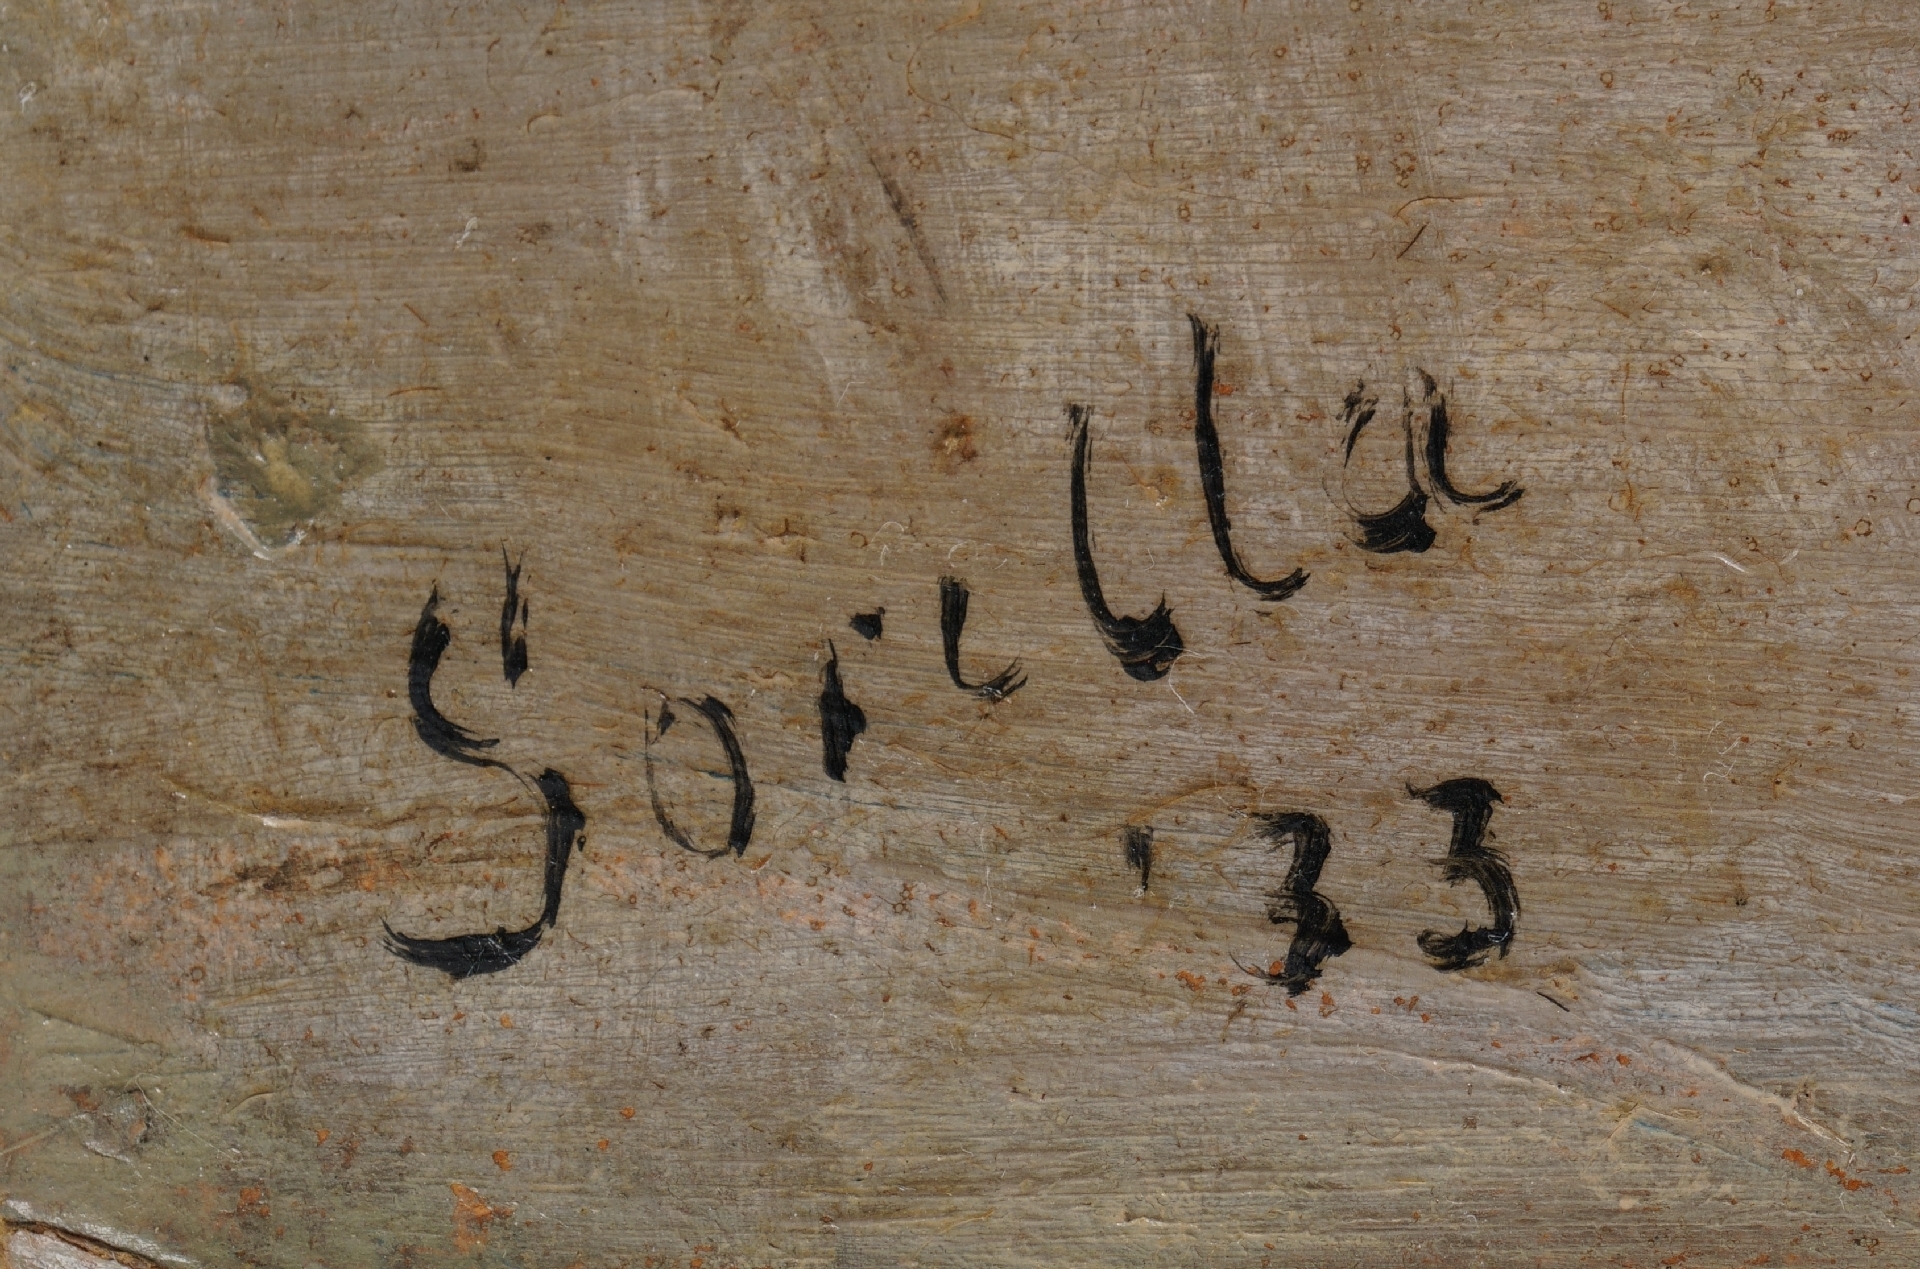 Sorilla
'33